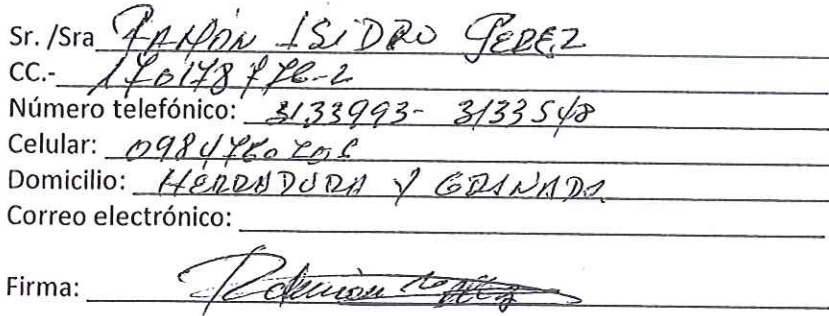 Sr. /Sra RAMÓN ISIDRO PEREZ
CC.- 170178776-2
Número telefónico: 3133993- 3133548
Celular:
Domicilio: HERRADURA Y GRANADA
Correo electrónico:
Firma: